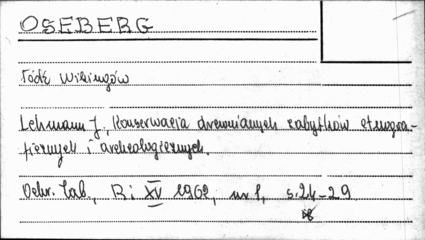 OSEBERG
Łódź Wikingów
Lehmann J., Konserwacja drewnianych zabytków etnogra-
ficznych i archeologicznych.
Ochr. Zab., R. XV 1962, nr 1, s. 24-29